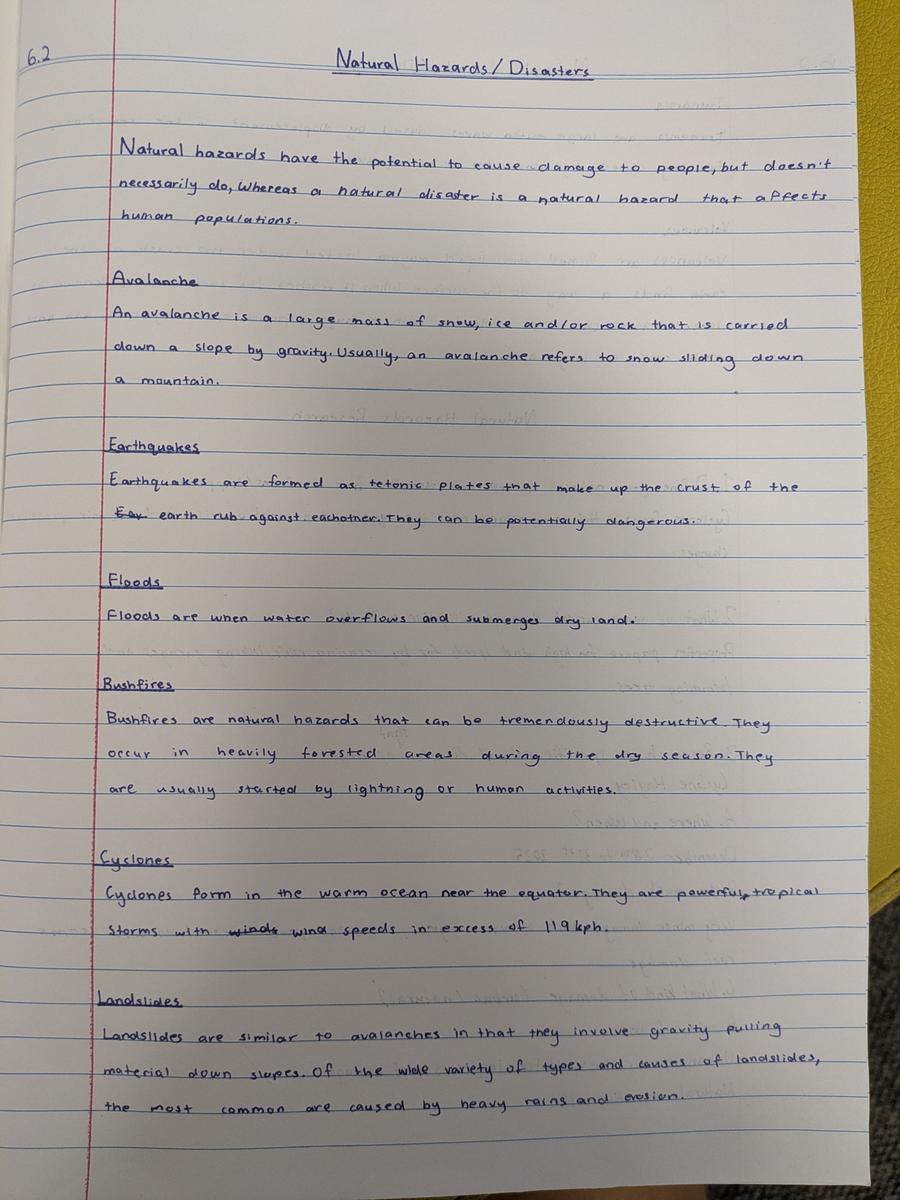 6.2
Natural Hazards/Disasters
Natural hazards have the potential to cause damage to people, but doesn't
necessarily do, whereas a natural disaster is a natural hazard that affects
human populations.
Avalanche
An avalanche is a large mass of snow, ice and/or rock that is carried
down a slope by gravity. Usually, an avalanche refers to snow sliding down
a mountain.
Earthquakes
Earthquakes are formed as tetonic plates that make up the crust of the
Ear earth rub against eachother. They can be potentially dangerous.
Floods
Floods are when water overflows and submerges dry land.
Bushfires
Bushfires are natural hazards that can be tremendously destructive. They
occur in heavily forested areas during the dry season. They
are usually started by lightning or human activities.
Cyclones
Cyclones form in the warm ocean near the equator. They are powerful, tropical
storms with winds wind speeds in excess of 119kph.
Landslides
Landslides are similar to avalanches in that they involve gravity pulling
material down slopes. Of the wide variety of types and causes of landslides,
the most common are caused by heavy rains and erosion.